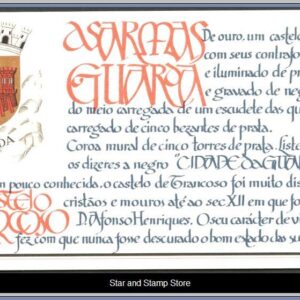 AS ARMAS
GUARDA
De ouro, um castelo
com seus contrafo
e iluminado de pr
e gravado de neg
do meio carregada de um escudete das qui
carregado de cinco bezantes de prata.
Coroa mural de cinco torres de prata. Liste
os dizeres a negro "CIDADE da GUA
DA
pouco conhecida, o castelo de Trancoso foi muito dis
cristãos e mouros até ao sec XII em que fo
D. Afonso Henriques. O seu carácter de v
fez com que nunca fosse descurado o bom estado das su
Star and Stamp Store